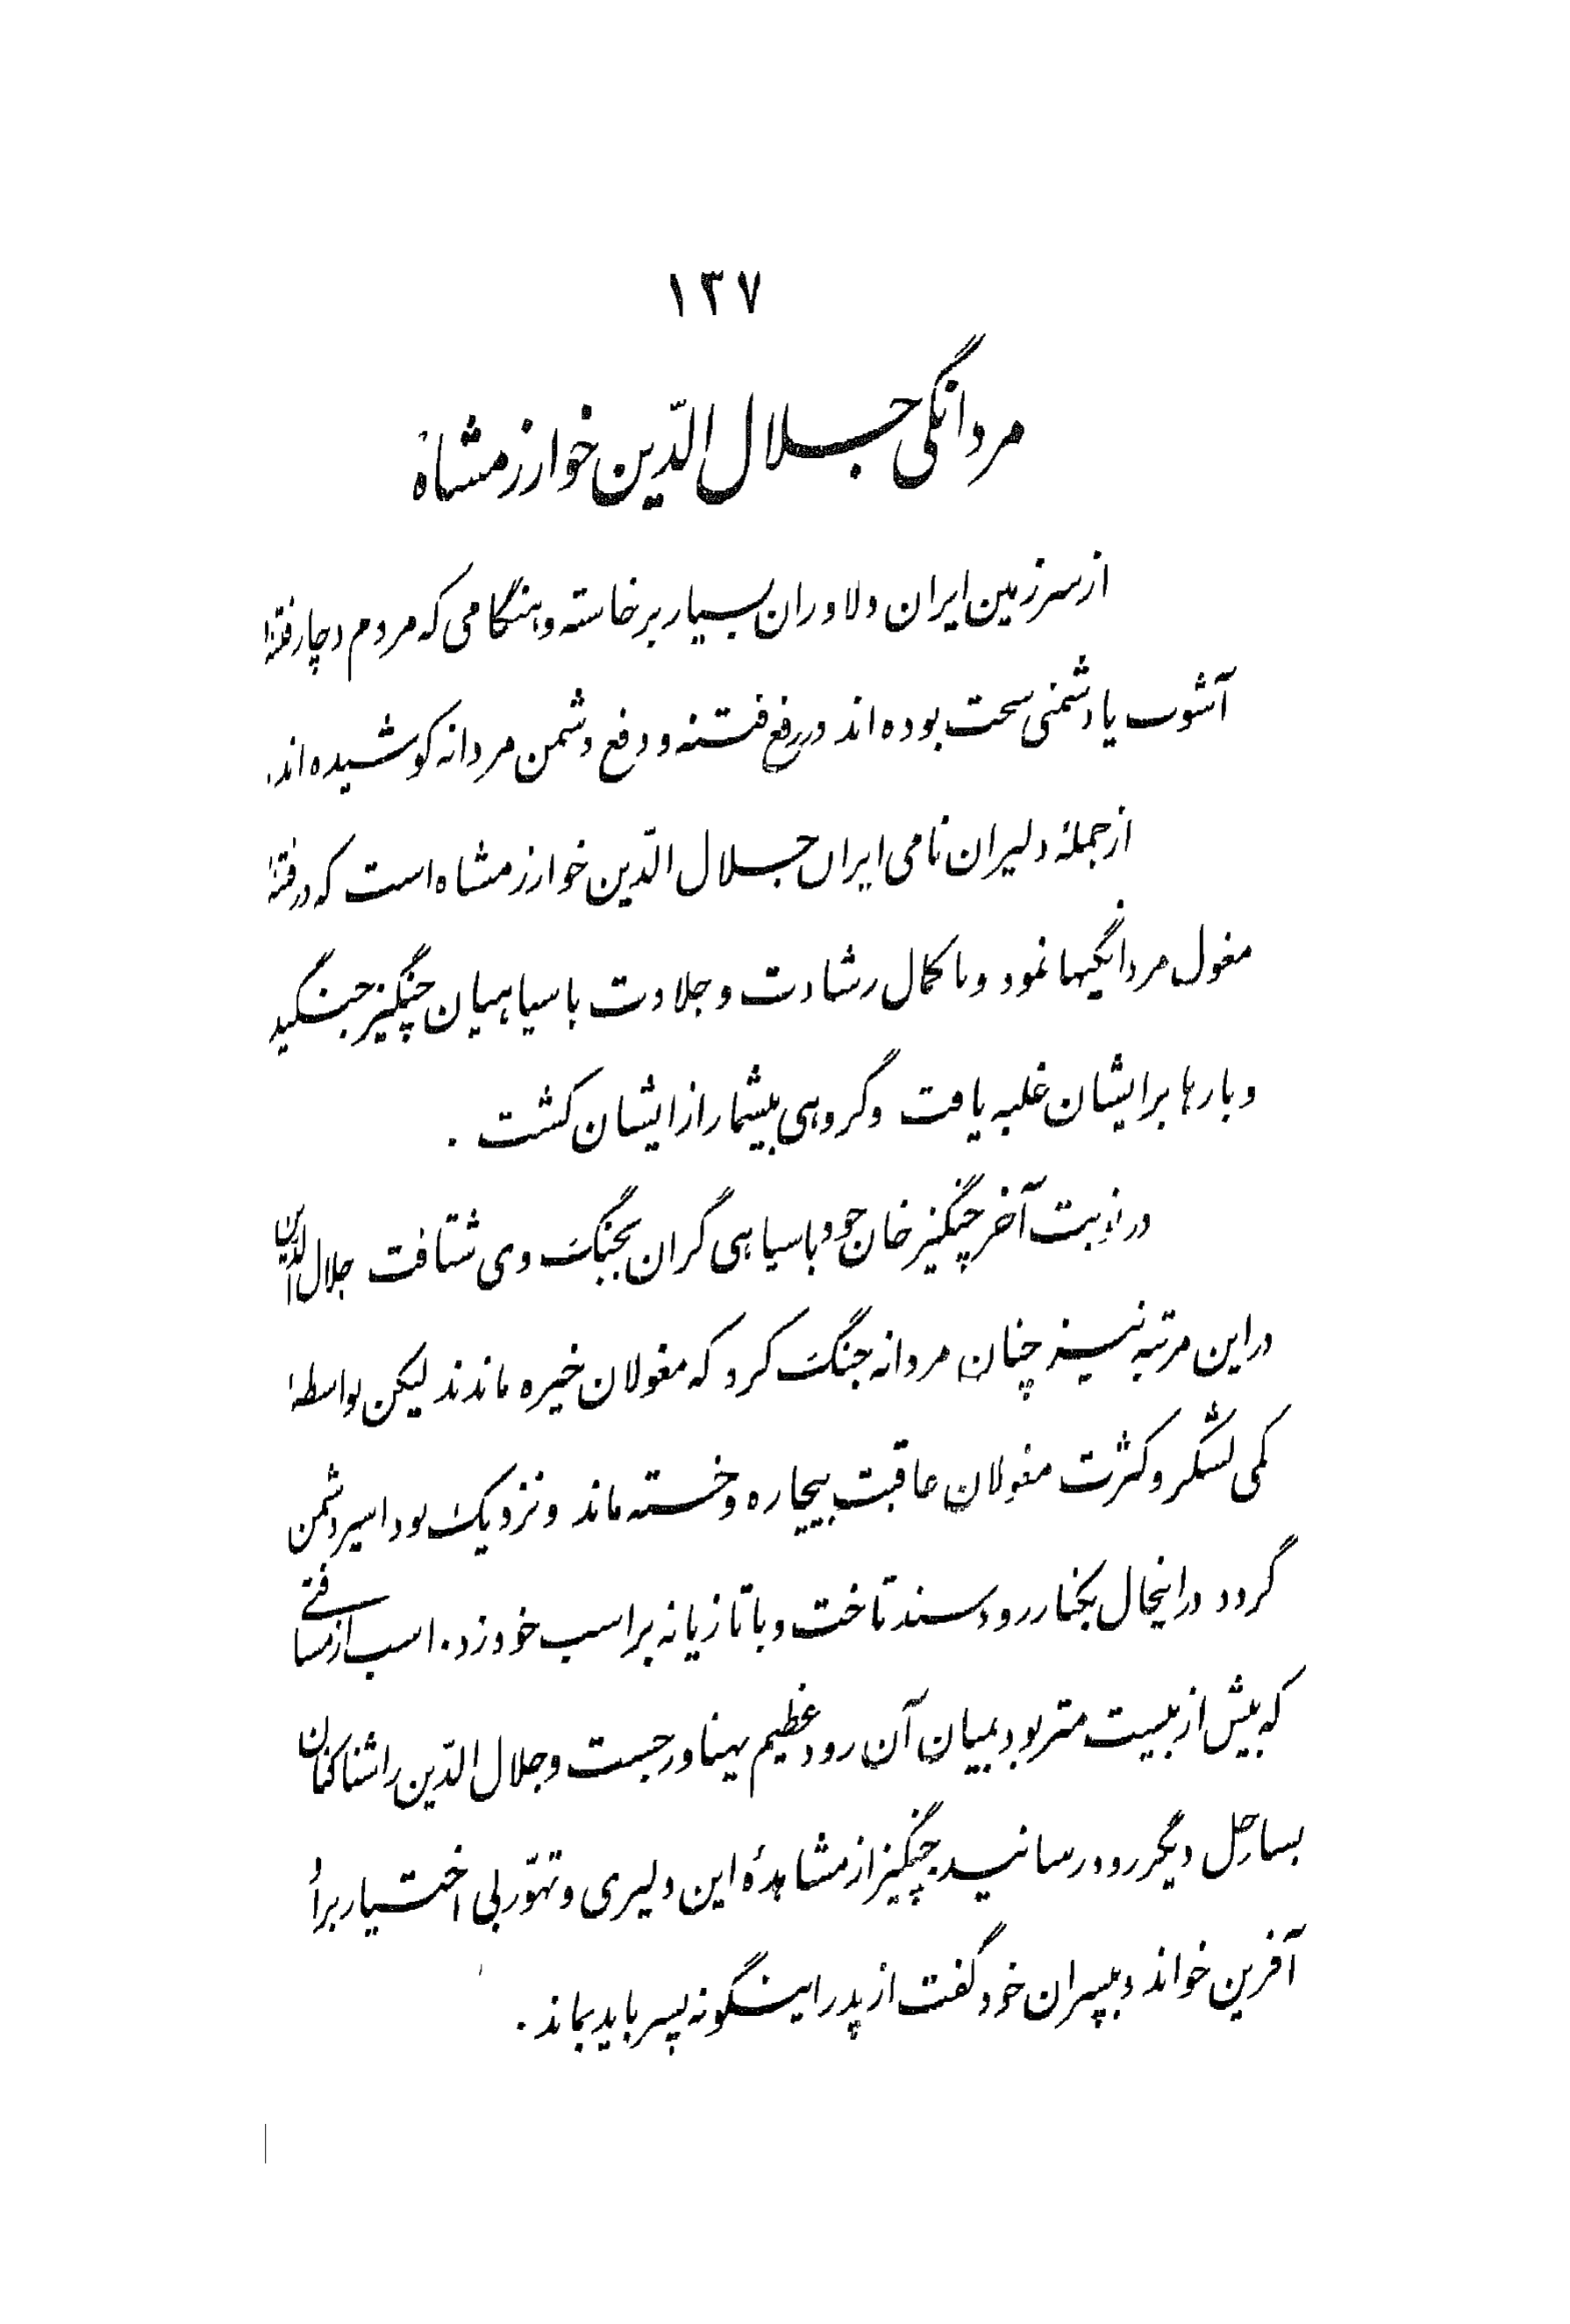 ۱۳۷
مردانگی جلال الدّین خوارزمشاه
از سرزمین ایران دلاوران بسیار برخاسته و هنگامی که مردم دچار فتنهٔ
آشوب یا دشمنی سخت بوده‌اند در رفع فتنه و دفع دشمن مردانه کوشیده‌اند.
از جملهٔ دلیران نامی ایران جلال الدّین خوارزمشاه است که در فتنهٔ
مغول مردانگیها نمود و با کمال رشادت و جلادت با سپاهیان چنگیز جنگید
و بارها بر ایشان غلبه یافت و گروهی بیشمار از ایشان کشت .
در نوبت آخر چنگیز خان خود با سپاهی گران بجنگ وی شتافت جلال الدّین
در این مرتبه نیز چنان مردانه جنگ کرد که مغولان خیره ماندند لیکن بواسطهٔ
کمی لشگر و کثرت مغولان عاقبت بیچاره و خسته ماند و نزدیک بود اسیر دشمن
گردد در اینحال بکنار رود سند تاخت و با تازیانه بر اسب خود زد. اسب از مسافتی
که بیش از بیست متر بود بمیان آن رود عظیم پهناور جست و جلال الدّین را شناکنان
بساحل دیگر رود رسانید چنگیز از مشاهدهٔ این دلیری و تهوّر بی اختیار بر او
آفرین خواند و بپسران خود گفت از پدر اینگونه پسر باید بماند .